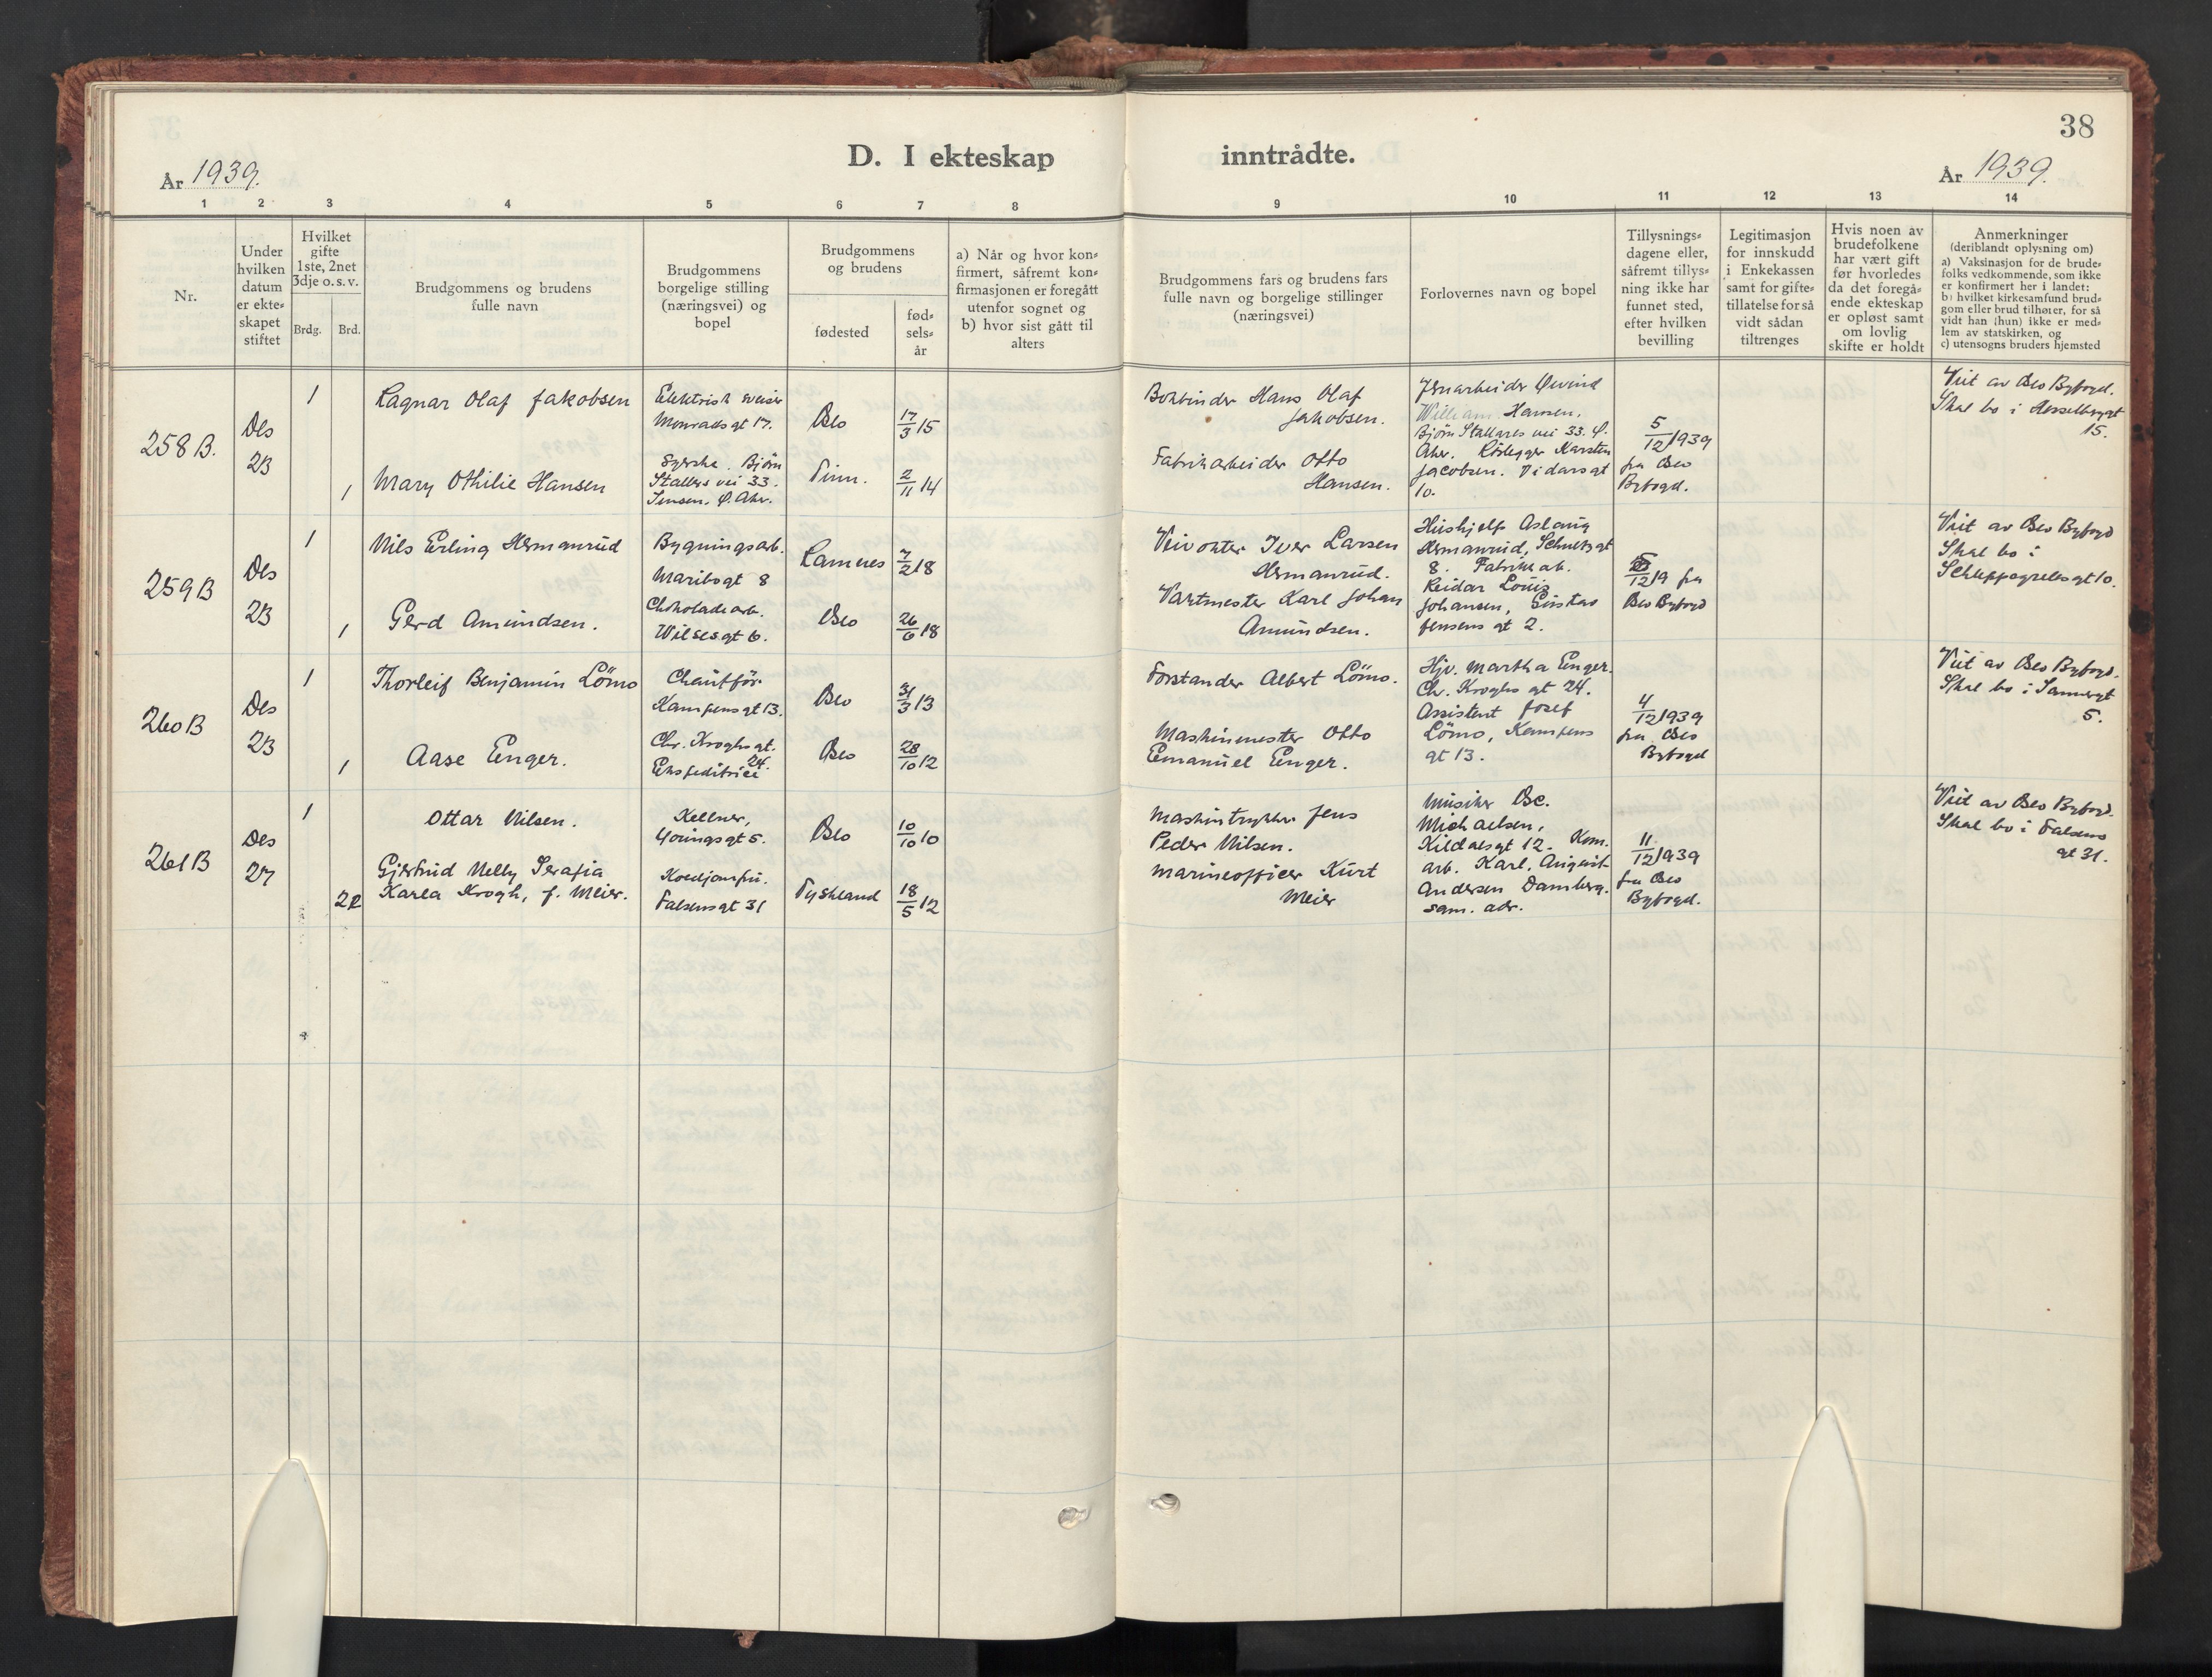 38
D. I ekteskap inntrådte.
År 1939.
År 1939.
1 2 3 4 5 6 7 8 9 10 11 12 13 14
Nr.
Under hvilken datum er ekte-skapet stiftet
Hvilket gifte 1ste, 2net 3dje o. s. v.
Brdg. Brd.
Brudgommens og brudens fulle navn
Brudgommens borgelige stilling (næringsvei) og bopel
Brudgommens og brudens
fødested
fød-sels-år
a) Når og hvor kon-firmert, såfremt kon-firmasjonen er foregått utenfor sognet og
b) hvor sist gått til alters
Brudgommens fars og brudens fars fulle navn og borgelige stillinger (næringsvei)
Forlovernes navn og bopel
Tillysnings-dagene eller, såfremt tillys-ning ikke har funnet sted, efter hvilken bevilling
Legitimasjon for innskudd i Enkekassen samt for gifte-tillatelse for så vidt sådan tiltrenges
Hvis noen av brudefolkene har vært gift før hvorledes da det foregå-ende ekteskap er opløst samt om lovlig skifte er holdt
Anmerkninger
(deriblandt oplysning om)
a) Vaksinasjon for de brude-folks vedkommende, som ikke er konfirmert her i landet:
b) hvilket kirkesamfund brud-gom eller brud tilhører, for så vidt han (hun) ikke er med-lem av statskirken, og
c) utensogns bruders hjemsted
258 B.
Des
23
1
Ragnar Olaf Jakobsen
Elektrisk sveiser
Monradsgt 17.
Oslo
17/3 15
1
Mary Othilie Hansen
Syerske. Bjørn
Stallars vei 33.
Sinsen, Ø. Aker.
Tinn.
2/11 14
Bokbinder Hans Olaf
Jakobsen.
Fabrikarbeider Otto
Hansen.
Jernarbeider Øivind
William Hansen.
Bjørn Stallares vei 33. Ø.
Aker. Rørlegger Karsten
Jacobsen. Vidarsgt
10.
5/12 1939
fra Oslo
Byfogd.
Viet av Oslo Byfogd.
Skal bo i Hesselbergt
15.
259 B
Des
23
1
Nils Erling Hermanrud
Bygningsarb.
Maribogt 8
Ramnes
7/2 18
1
Gerd Amundsen.
Chokoladearb.
Wilsesgt 6.
Oslo
26/6 18
Veivokter Iver Larsen
Hermanrud.
Vaktmester Karl Johan
Amundsen.
Hushjelp Aslaug
Hermanrud, Schultzgt
8. Fabrikarb.
Reidar Louis
Johansen, Gustav
Jensens gt 2.
5/12 19 fra
Oslo Byfogd
Viet av Oslo Byfogd
Skal bo i
Schleppegrellsgt 10.
260 B
Des
23
1
Thorleif Benjamin Lömo
Chaufför
Kampensgt 13.
Oslo
31/3 13
1
Aase Enger.
Chr. Kroghsgt.
24.
Ekspeditrice
Oslo
28/10 12
Forstander Albert Lömo.
Maskinmester Otto
Emanuel Enger.
Hjv. Martha Enger.
Ch. Kroghs gt 24.
Assistent Josef
Lömo, Kampens
gt 13.
4/12 1939
fra Oslo
Byfogd
Viet av Oslo Byfogd.
Skal bo i Sannergt
5.
261 B
Des
27
1
Ottar Nilsen.
Kellner,
Youngsgt 5.
Oslo
10/10 10
2
Gjertrud Nelly Serafia
Karla Krogh, f. Meier.
Koldjomfru.
Falsensgt 31
Tyskland
18/5 12
Maskintrykker Jens
Peder Nilsen.
Marineofficer Kurt
Meier
Musiker Osc.
Michaelsen,
Kildalsgt 12. Kom.
arb. Karl. August
Andersen Damberg.
sam. adr.
11/12 1939
fra Oslo
Byfogd.
Viet av Oslo Byfogd.
Skal bo i Falsens
gt 31.